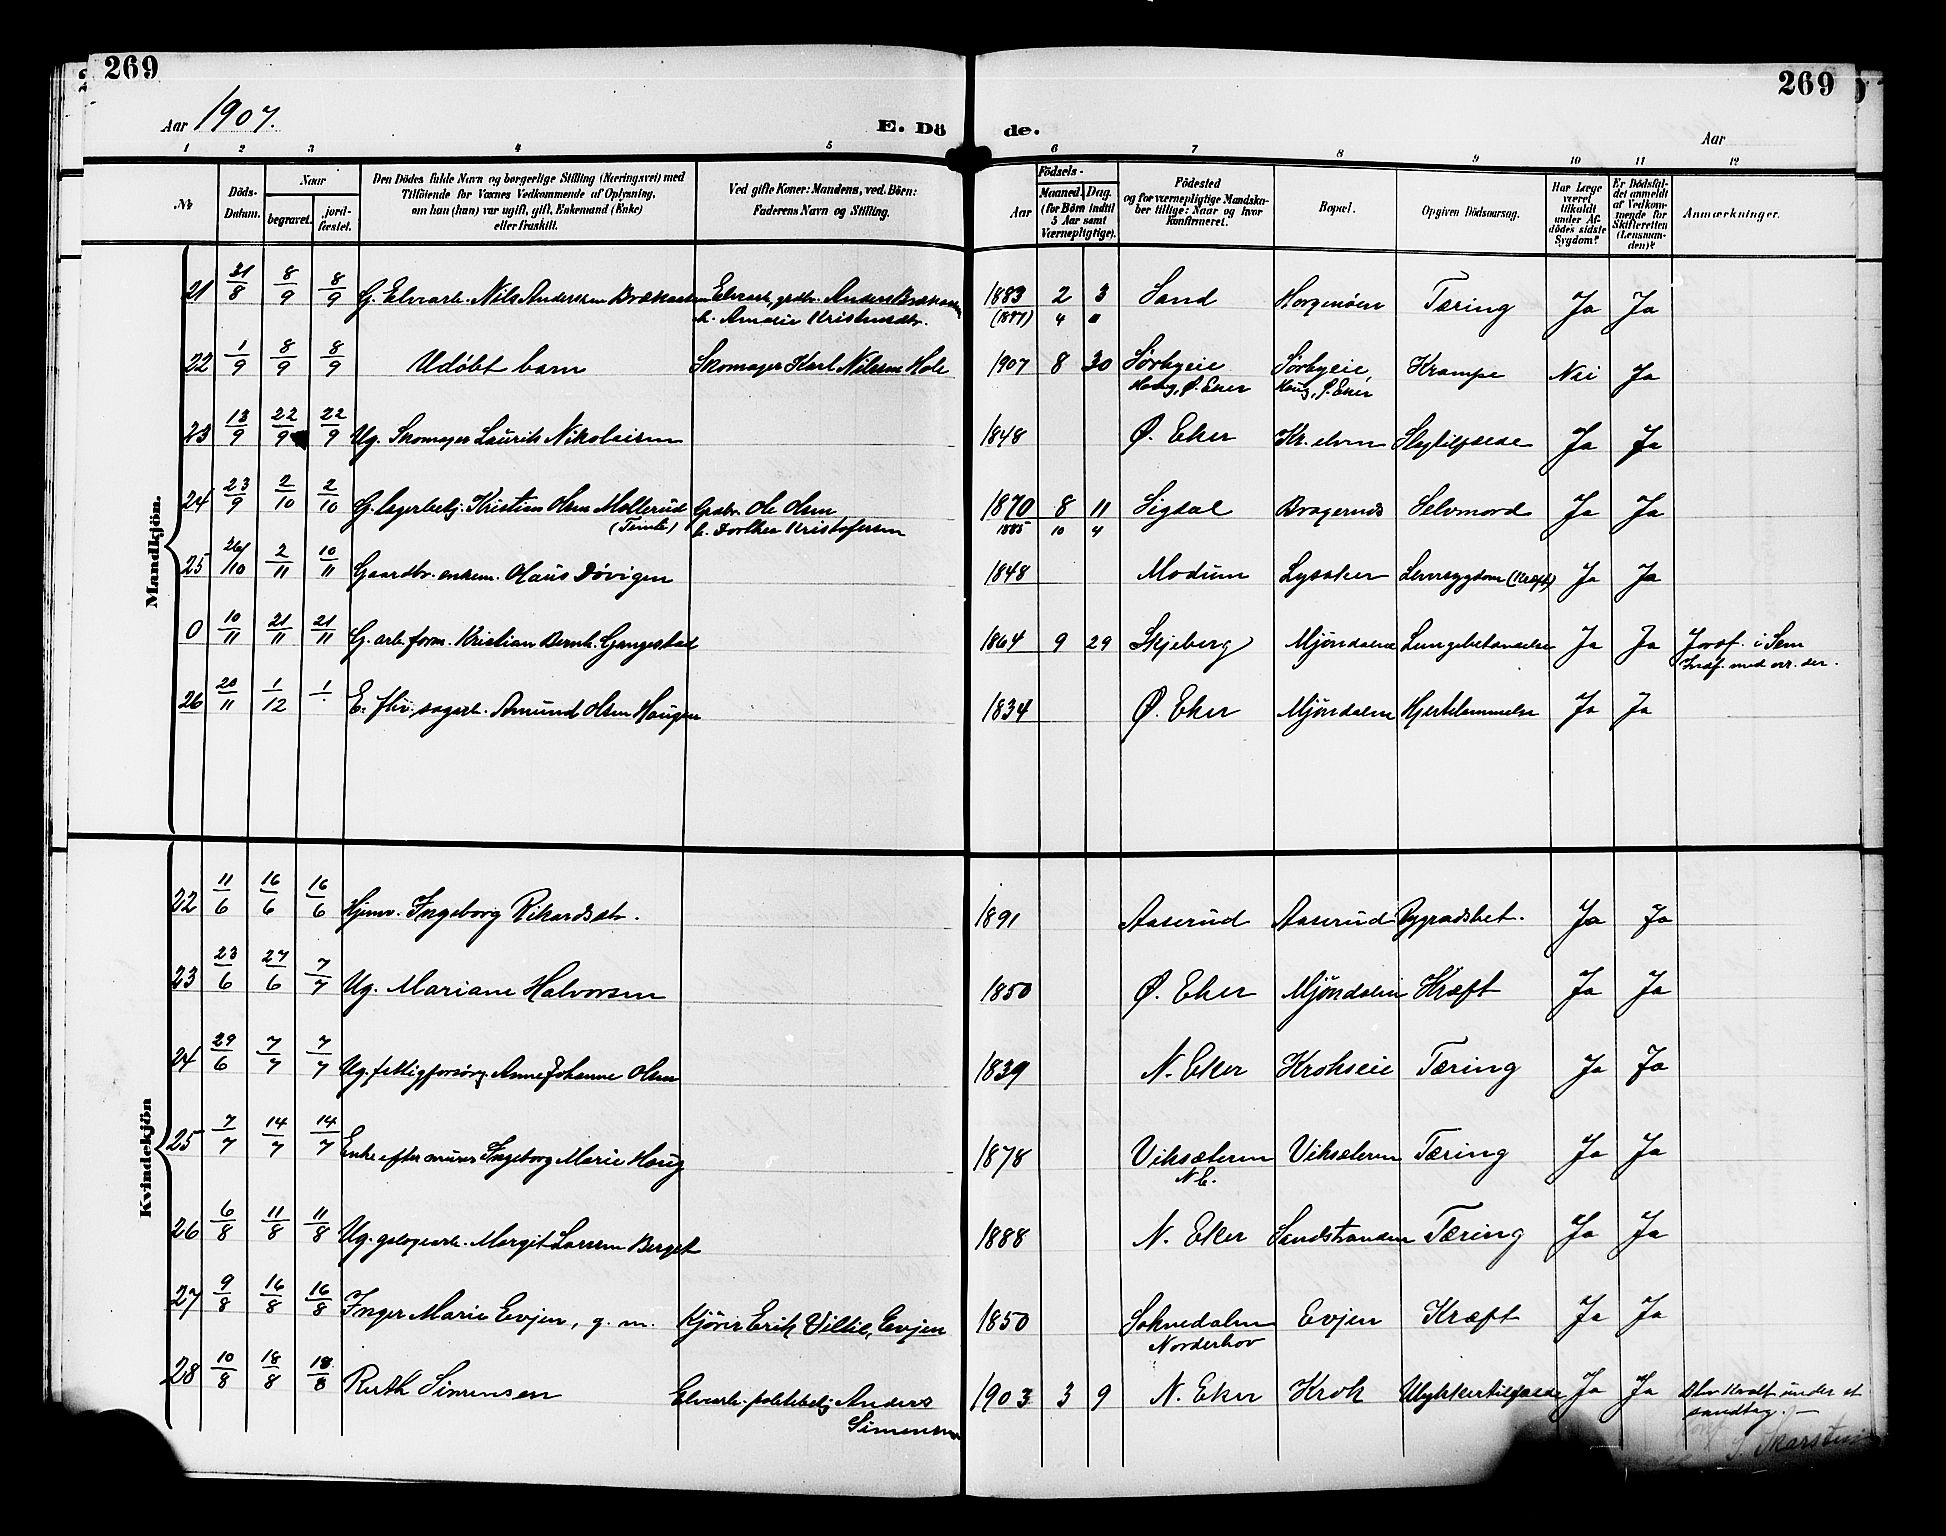 269
269
Aar 1907.
E. Dö de.
Aar
1 2 3 4 5 6 7 8 9 10 11 12
No.
Döds-Datum.
Naar
begravet.
jord-fæstet.
Den Dödes fulde Navn og borgerlige Stilling (Næringsvei) med
Tilföiende for Voxnes Vedkommende af Oplysning,
om han (hun) var ugift, gift, Enkemand (Enke)
eller fraskilt.
Ved gifte Koner: Mandens, ved Börn:
Faderens Navn og Stilling.
Födsels-
Aar
Maaned. Dag.
(for Börn indtil
5 Aar samt
Værnepligtige).
Födested
og for værnepligtige Mandska-
ber tillige: Naar og hvor
Konfirmeret.
Bopæl.
Opgiven Dödsaarsag.
Har Læge
været
tilkaldt
under Af-
dödes sidste
Sygdom?
Er Dödsfal-
det anmeldt
af Vedkom-
mende for
Skifteretten
(Lensman-
den)?
Anmærkninger.
Mandkjön.
21 31/8 8/9 8/9 G. Elvearb. Nils Andersen Brækaasen Elvearb. grdbr. Anders Brækaasen 1883 2 3 Sand Horgenöen Tæring Ja Ja
h. Amalie Kristensdtr. (1897) 4 11
22 1/9 8/9 8/9 Udöbt barn Skomager Karl Nilsen Hole 1907 8 30 Sörbyeie Sörbyeie, Krampe Nei Ja
Haug, Ø. Eker Haug, Ø. Eker
23 13/9 22/9 22/9 Ug. Skomager Laurits Nikolaisen 1848 Ø. Eker Kr. elven Slagtilfælde Ja Ja
24 23/9 2/10 2/10 G. lagerbetj. Kristian Olsen Møllerud Grdbr. Ole Olsen 1870 8 11 Sigdal Bragernes Selvmord Ja Ja
h. Dorthea Kristofersen 1885 10 4
25 26/10 2/11 10/11 Gaardbr. enkem. Olaus Dövigen 1848 Modum Lysaker Leversygdom (Kræft) Ja Ja
0 10/11 21/11 21/11 G. arb. form. Kristian Bernh. Gangestad 1864 9 29 Skjeberg Mjöndalen Lungebetændelse Ja Ja Jordf. i Sem
26 20/11 1/12 1/ E. fhv. sagarb. Amund Olsen Haugen 1834 Ø. Eker Mjöndalen Hjertelammelse Ja Ja
Kvindekjön
22 11/6 16/6 16/6 Hjemv. Ingeborg Rikardsdtr. 1891 Aaserud Aaserud Rygradsbet. Ja Ja
23 23/6 27/6 7/7 Ug. Mariane Halvorsen 1850 Ø. Eker Mjöndalen Kræft Ja Ja
24 29/6 7/7 7/7 Ug. fattigforsörg. Anne Johanne Olsen 1839 N. Eker Krokseie Tæring Ja Ja
25 7/7 14/7 14/7 Enke efter murer Ingeborg Marie Haug 1878 Viksæteren Viksæteren Tæring Ja Ja
N. E.
26 6/8 11/8 11/8 Ug. galogearb. Margit Larsen Berget 1888 N. Eker Sandstranden Tæring Ja Ja
27 9/8 16/8 16/8 Inger Marie Evjen, g. m. Kjörer Erik Villie, Evjen 1850 Soknedalen Evjen Kræft Ja Ja
Norderhov
28 10/8 18/8 18/8 Ruth Simensen Elvearb. politibetj. Anders 1903 3 9 N. Eker Krok Ulykkestilfælde Ja Ja Blev kvalt under et
Simensen sandtag. —
Skarstein